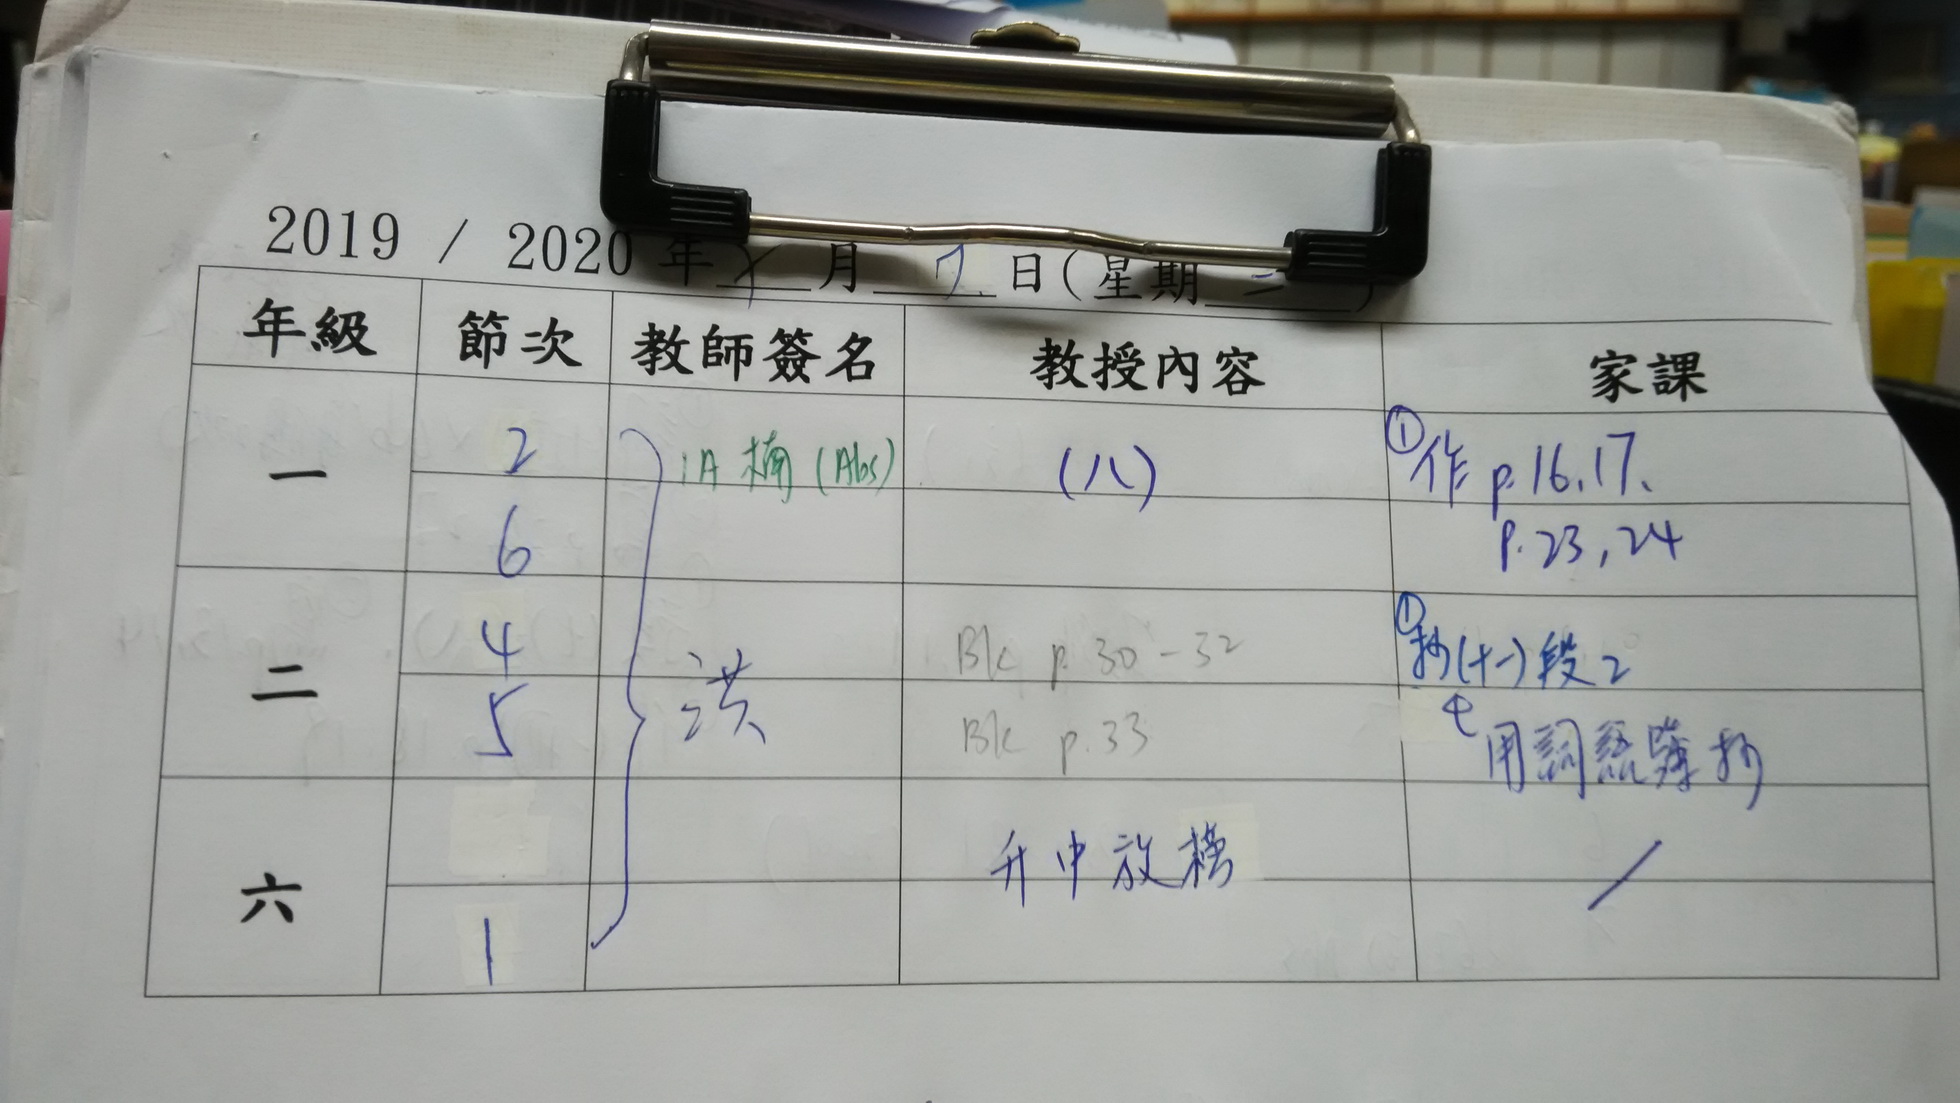 2019 / 2020 年 月 7 日(星期 二 )
年級 節次 教師簽名 教授內容 家課
一 2 1A 楠 (Abs) (八) ①作 p.16.17.
6 p.23,24
二 4 洪 Bk p.30-32 ①抄(十一)段2
5 Bk p.33 用詞語簿抄
六 升中放榜 /
1